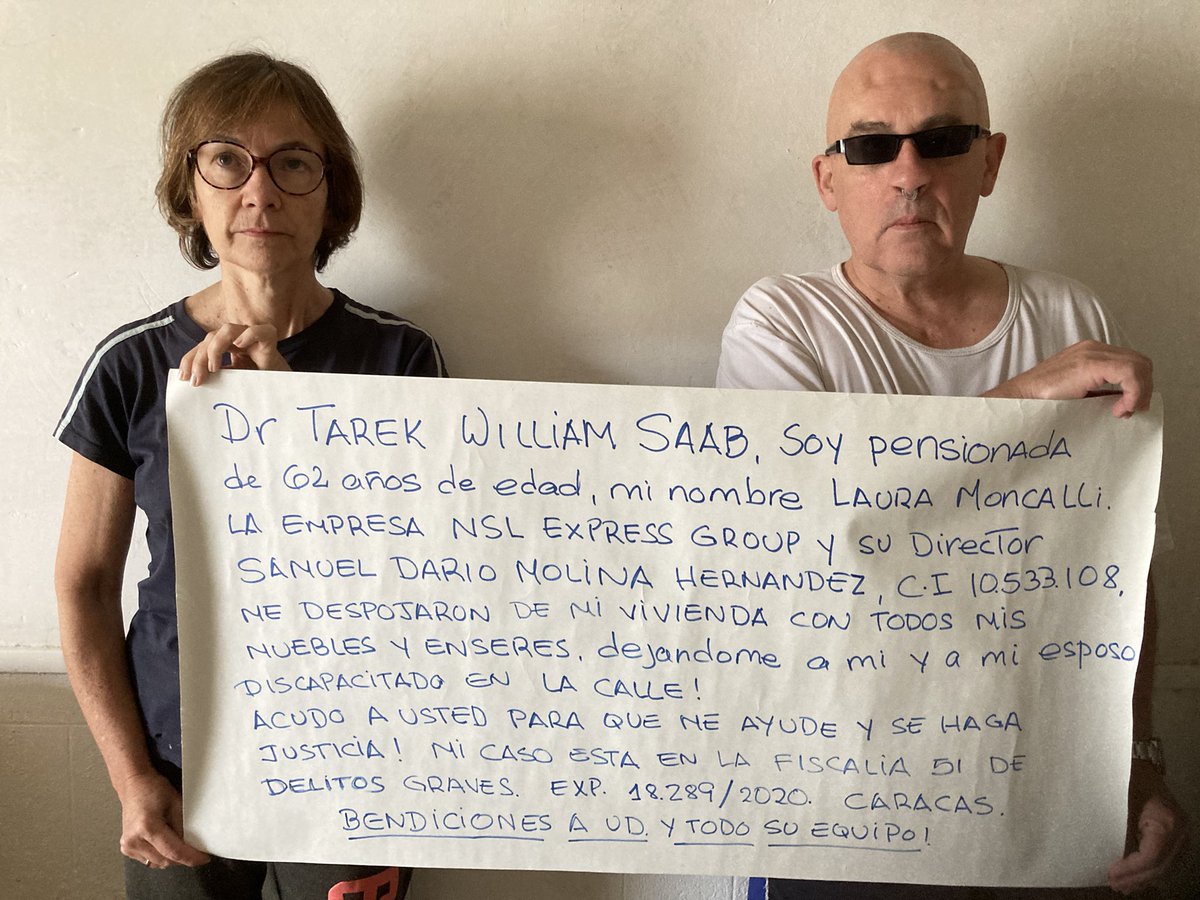 Dr TAREK WILLIAM SAAB, soy pensionada
de 62 años de edad, mi nombre LAURA MONCALLI.
LA EMPRESA NSL EXPRESS GROUP y su Director
SAMUEL DARIO MOLINA HERNANDEZ, C.I 10.533.108,
ME DESPOJARON DE MI VIVIENDA CON TODOS MIS
MUEBLES Y ENSERES, dejandome a mi y a mi esposo
DISCAPACITADO EN LA CALLE!
ACUDO A USTED PARA QUE ME AYUDE Y SE HAGA
JUSTICIA! MI CASO ESTA EN LA FISCALIA 51 DE
DELITOS GRAVES. EXP. 18.289/2020. CARACAS.
BENDICIONES A UD. Y TODO SU EQUIPO!